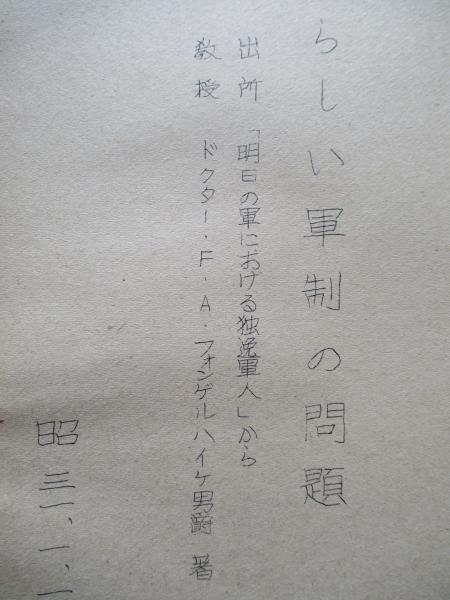 らしい軍制の問題
出所 「明日の軍における独逸軍人」から
教授 ドクター・F・A・フォンゲルハイケ男爵 著
昭三一、一、一